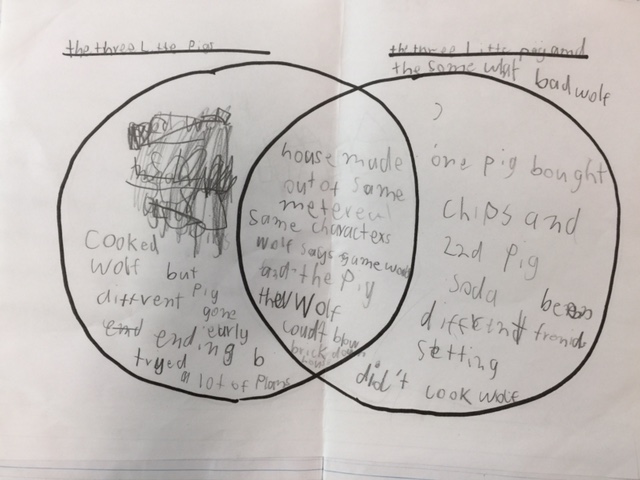 the three Little Pigs
the three Little pig and
the some what bad wolf
Cooked
wolf but
diffvent pig
gone
early
ending
tryed
a lot of plans
house made
out of same
metereul
same characters
wolf says same
and the pig
the Wolf
coudt blow
brick down
one pig bought
chips and
2nd pig
soda
diffrint
setting
didn't
cook wolf